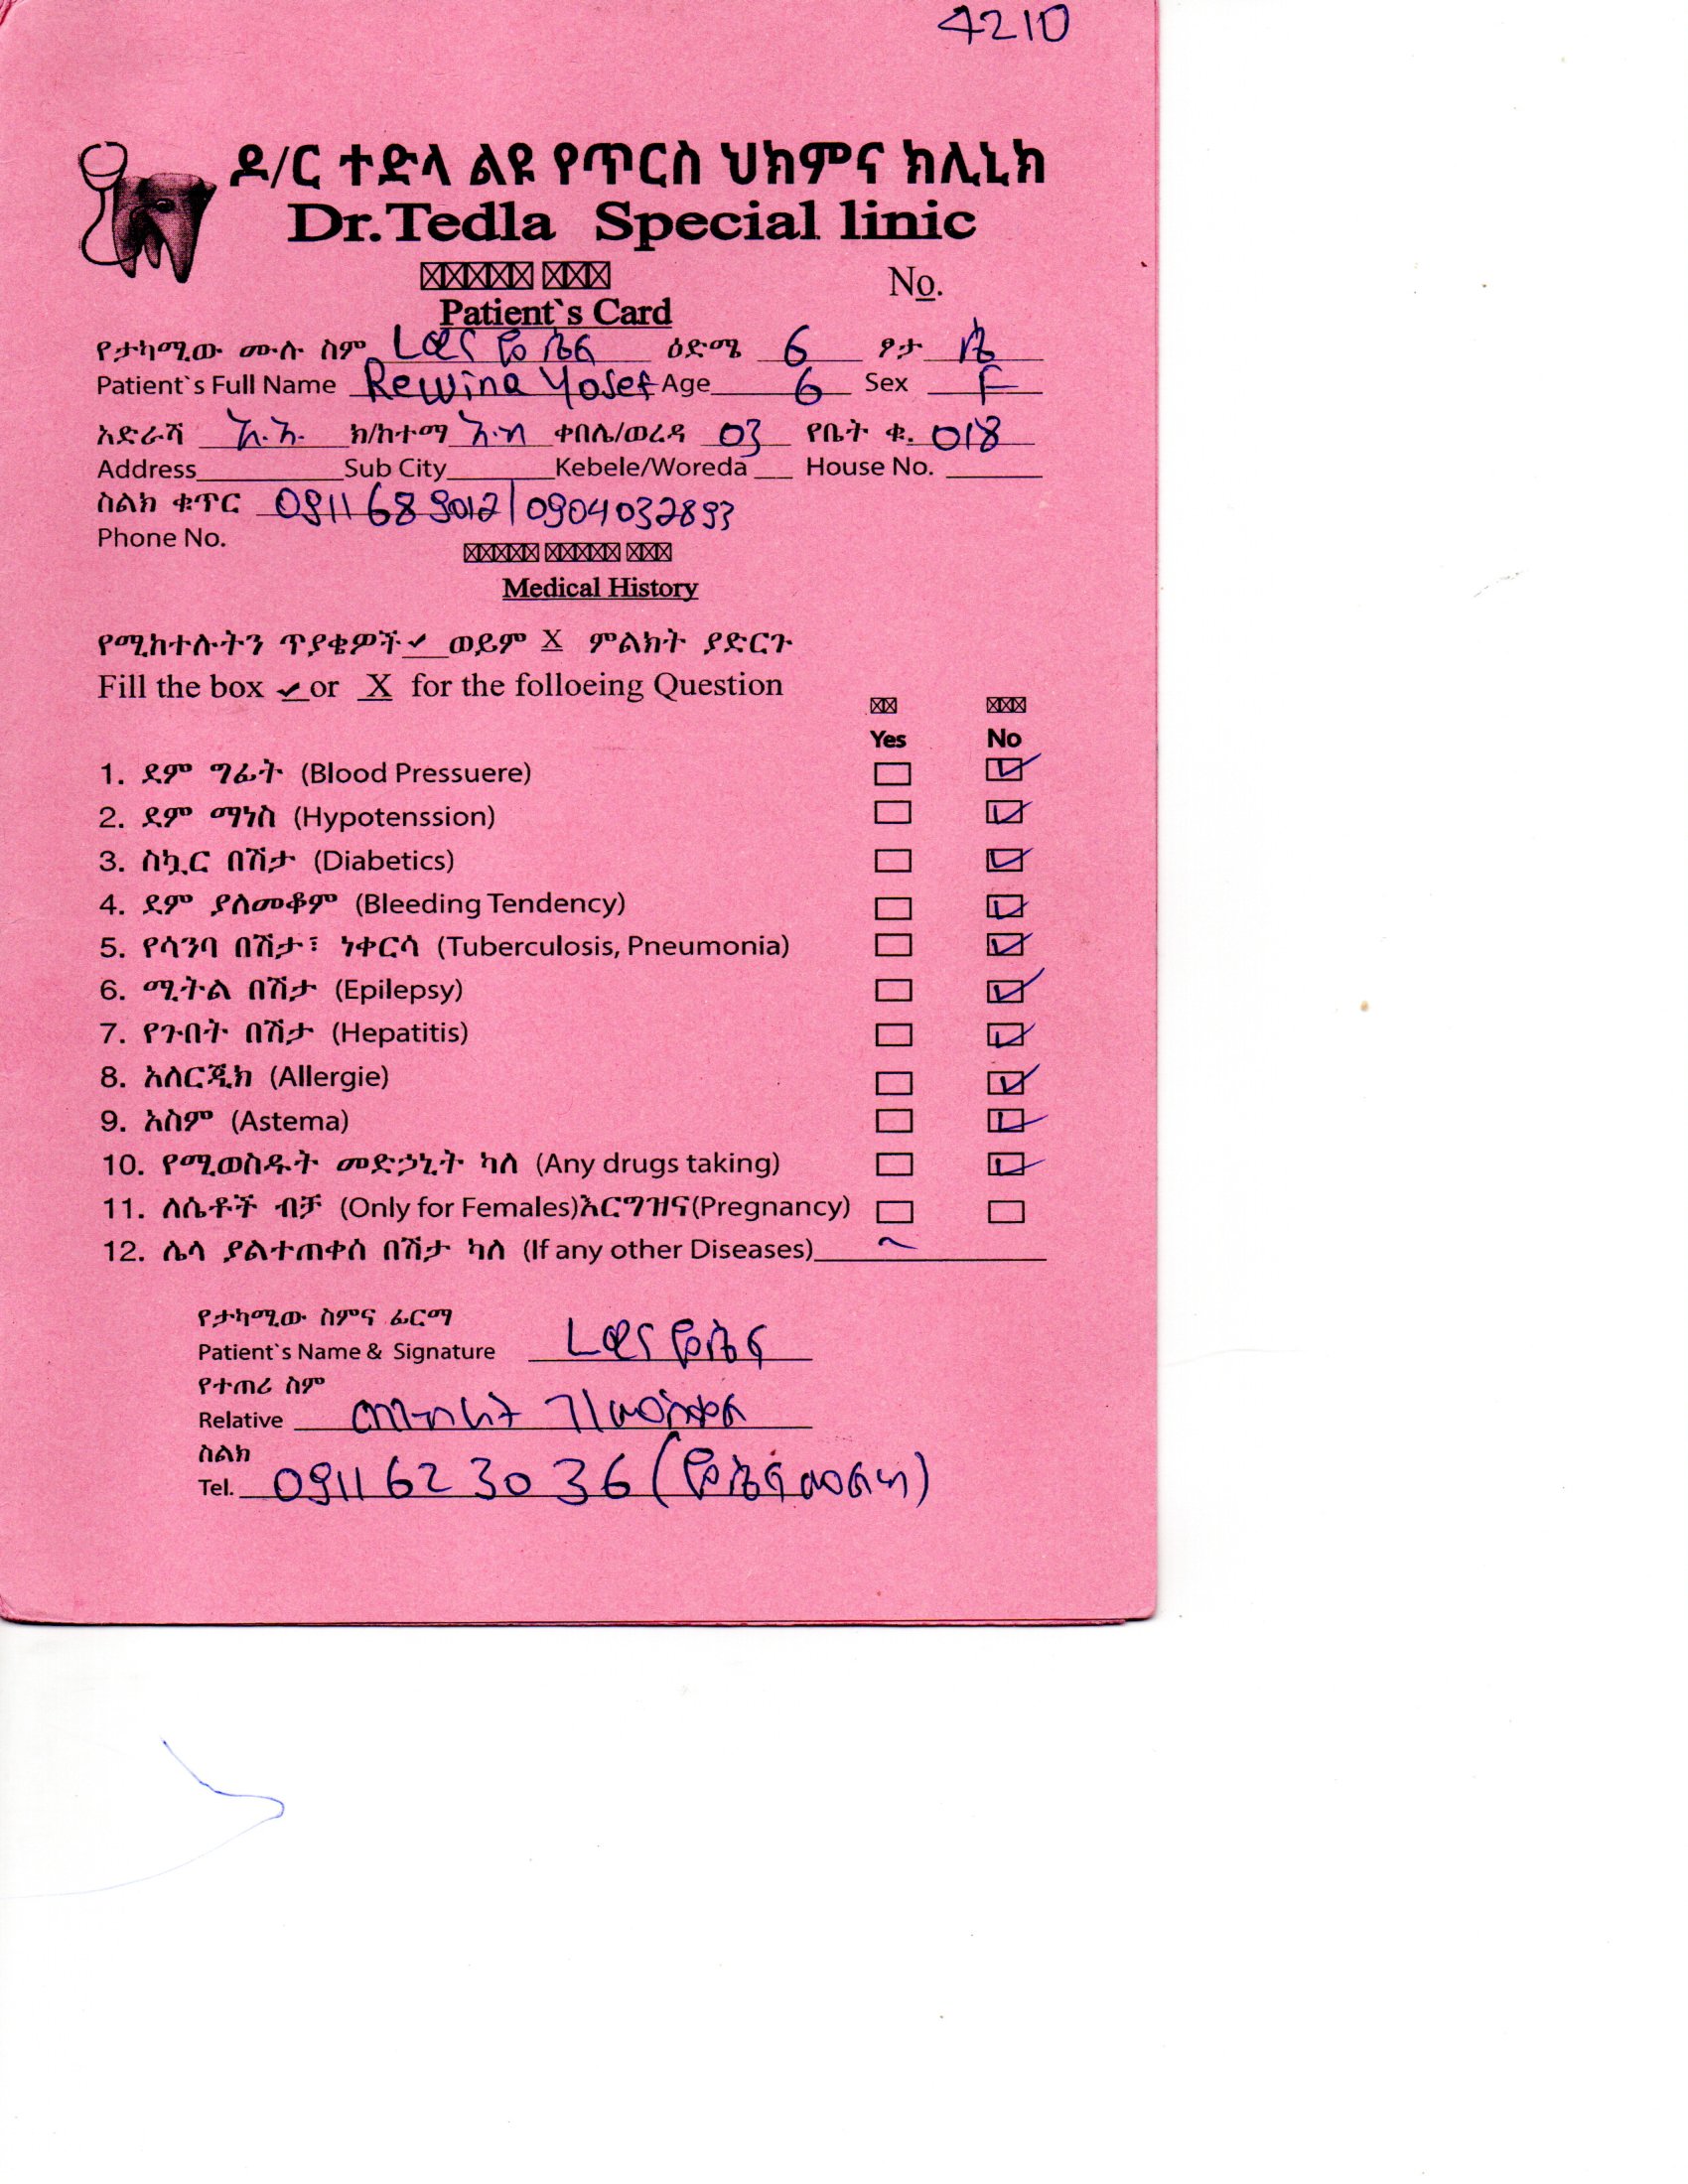 4210
ዶ/ር ተድላ ልዩ የጥርስ ህክምና ክሊኒክ
Dr.Tedla Special linic
No.
Patient`s Card
የታካሚው ሙሉ ስም ሪዊና ዮሴፍ ዕድሜ 6 ፆታ ሴ
Patient`s Full Name Rewina Yosef Age 6 Sex F
አድራሻ አ.አ. ክ/ከተማ ቀበሌ/ወረዳ 03 የቤት ቁ. 018
Address Sub City Kebele/Woreda House No.
ስልክ ቁጥር 0911689012/0904032893
Phone No.
Medical History
የሚከተሉትን ጥያቄዎች ✓ ወይም X ምልክት ያድርጉ
Fill the box ✓ or X for the folloeing Question
Yes No
1. ደም ግፊት (Blood Pressuere) ✓
2. ደም ማነስ (Hypotenssion) ✓
3. ስኳር በሽታ (Diabetics) ✓
4. ደም ያለመቆም (Bleeding Tendency) ✓
5. የሳንባ በሽታ፣ ነቀርሳ (Tuberculosis, Pneumonia) ✓
6. ሚትል በሽታ (Epilepsy) ✓
7. የጉበት በሽታ (Hepatitis) ✓
8. አለርጂክ (Allergie) ✓
9. አስም (Astema) ✓
10. የሚወስዱት መድኃኒት ካለ (Any drugs taking) ✓
11. ለሴቶች ብቻ (Only for Females)እርግዝና(Pregnancy)
12. ሌላ ያልተጠቀሰ በሽታ ካለ (If any other Diseases)
የታካሚው ስምና ፊርማ
Patient`s Name & Signature ሪዊና ዮሴፍ
የተጠሪ ስም
Relative
ስልክ
Tel. 0911623036 (ዮሴፍ